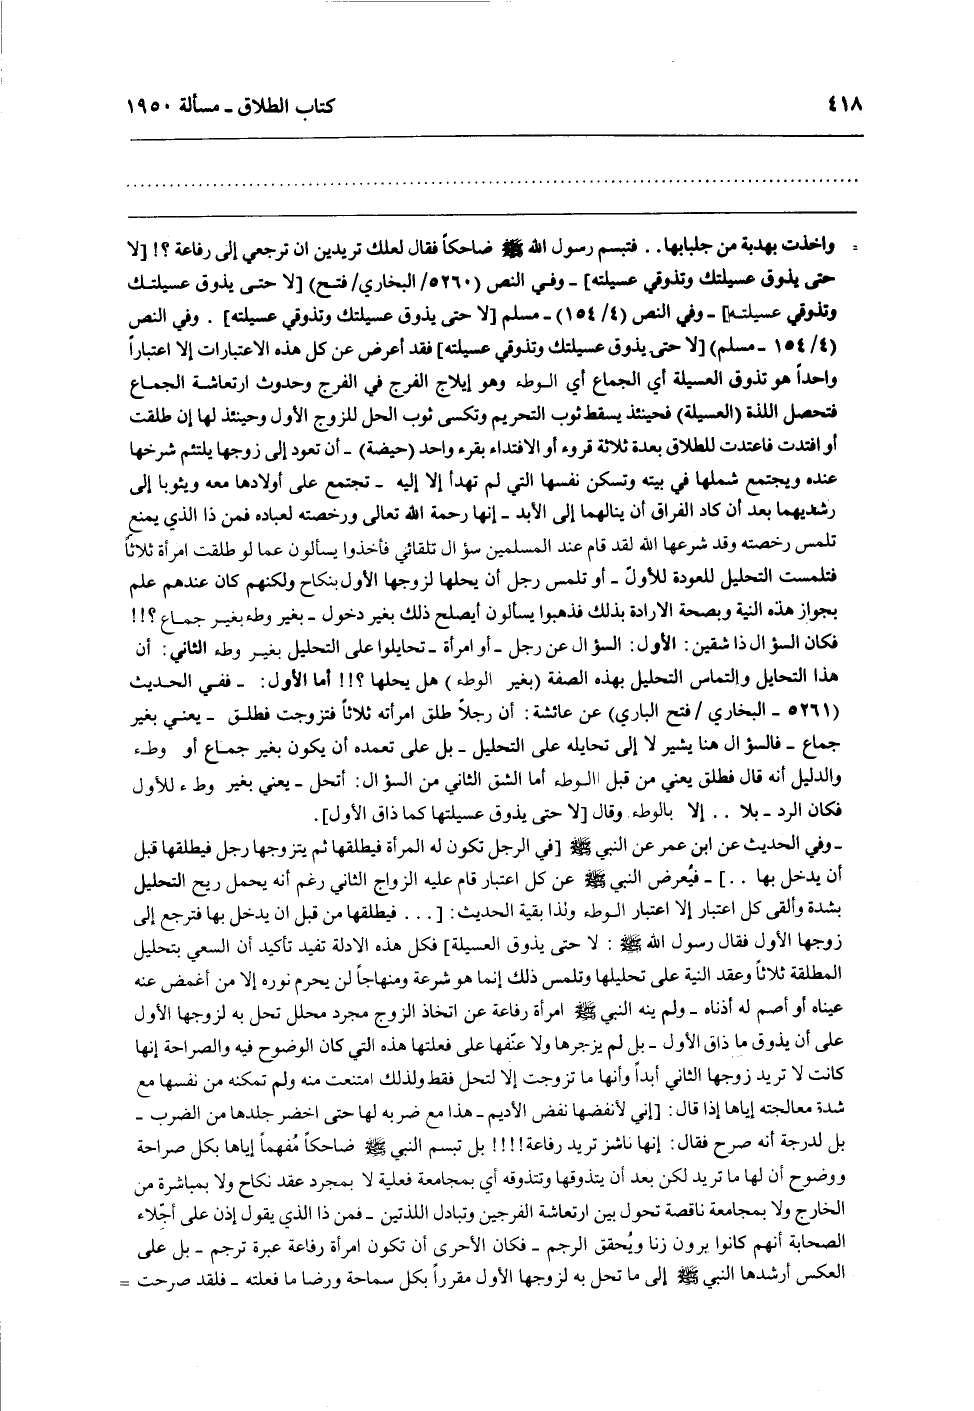 ٤١٨
كتاب الطلاق ـ مسألة ١٩٥٠
= واخذت بهدبة من جلبابها . . فتبسم رسول الله ﷺ ضاحكاً فقال لعلك تريدين ان ترجعي إلى رفاعة ؟! [لا
حتى يذوق عسيلتك وتذوقي عسيلته] ـ وفي النص (٥٢٦٠/ البخاري/ فتح) [لا حتى يذوق عسيلتك
وتذوقي عسيلته] ـ وفي النص (٤/ ١٥٤) ـ مسلم [لا حتى يذوق عسيلتك وتذوقي عسيلته] . وفي النص
(٤/ ١٥٤ ـ مسلم) [لا حتى يذوق عسيلتك وتذوقي عسيلته] فقد أعرض عن كل هذه الاعتبارات إلا اعتباراً
واحداً هو تذوق العسيلة أي الجماع أي الوطء وهو إيلاج الفرج في الفرج وحدوث ارتعاشة الجماع
فتحصل اللذة (العسيلة) فحينئذ يسقط ثوب التحريم وتكسى ثوب الحل للزوج الأول وحينئذ لها إن طلقت
أو افتدت فاعتدت للطلاق بعدة ثلاثة قروء أو الافتداء بقرء واحد (حيضة) ـ أن تعود إلى زوجها يلتئم شرخها
عنده ويجتمع شملها في بيته وتسكن نفسها التي لم تهدأ إلا إليه ـ تجتمع على أولادها معه ويثوبا إلى
رشديهما بعد أن كاد الفراق أن ينالهما إلى الأبد ـ إنها رحمة الله تعالى ورخصته لعباده فمن ذا الذي يمنع
تلمس رخصته وقد شرعها الله لقد قام عند المسلمين سؤال تلقائي فأخذوا يسألون عما لو طلقت امرأة ثلاثاً
فتلمست التحليل للعودة للأول ـ أو تلمس رجل أن يحلها لزوجها الأول بنكاح ولكنهم كان عندهم علم
بجواز هذه النية وبصحة الارادة بذلك فذهبوا يسألون أيصلح ذلك بغير دخول ـ بغير وطء بغير جماع ؟!!
فكان السؤال ذا شقين : الأول : السؤال عن رجل ـ أو امرأة ـ تحايلوا على التحليل بغير وطء الثاني : أن
هذا التحايل والتماس التحليل بهذه الصفة (بغير الوطء) هل يحلها ؟!! أما الأول : ـ ففي الحديث
(٥٢٦١ ـ البخاري / فتح الباري) عن عائشة : أن رجلاً طلق امرأته ثلاثاً فتزوجت فطلق ـ يعني بغير
جماع ـ فالسؤال هنا يشير لا إلى تحايله على التحليل ـ بل على تعمده أن يكون بغير جماع أو وطء
والدليل أنه قال فطلق يعني من قبل الوطء أما الشق الثاني من السؤال : أتحل ـ يعني بغير وطء للأول
فكان الرد ـ بلا . . إلا بالوطء وقال [لا حتى يذوق عسيلتها كما ذاق الأول] .
ـ وفي الحديث عن ابن عمر عن النبي ﷺ [في الرجل تكون له المرأة فيطلقها ثم يتزوجها رجل فيطلقها قبل
أن يدخل بها . .] ـ فيُعرض النبي ﷺ عن كل اعتبار قام عليه الزواج الثاني رغم أنه يحمل ريح التحليل
بشدة وألقى كل اعتبار إلا اعتبار الوطء ولذا بقية الحديث : [ . . . فيطلقها من قبل ان يدخل بها فترجع إلى
زوجها الأول فقال رسول الله ﷺ : لا حتى يذوق العسيلة] فكل هذه الادلة تفيد تأكيد أن السعي بتحليل
المطلقة ثلاثاً وعقد النية على تحليلها وتلمس ذلك إنما هو شرعة ومنهاجاً لن يحرم نوره إلا من أغمض عنه
عيناه أو أصم له أذناه ـ ولم ينه النبي ﷺ امرأة رفاعة عن اتخاذ الزوج مجرد محلل تحل به لزوجها الأول
على أن يذوق ما ذاق الأول ـ بل لم يزجرها ولا عنّفها على فعلتها هذه التي كان الوضوح فيه والصراحة إنها
كانت لا تريد زوجها الثاني أبداً وأنها ما تزوجت إلا لتحل فقط ولذلك امتنعت منه ولم تمكنه من نفسها مع
شدة معالجته إياها إذا قال : [إني لأنفضها نفض الأديم ـ هذا مع ضربه لها حتى اخضر جلدها من الضرب ـ
بل لدرجة أنه صرح فقال : إنها ناشز تريد رفاعة !!!! بل تبسم النبي ﷺ ضاحكاً مُفهماً إياها بكل صراحة
ووضوح أن لها ما تريد لكن بعد أن يتذوقها وتتذوقه أي بمجامعة فعلية لا بمجرد عقد نكاح ولا بمباشرة من
الخارج ولا بمجامعة ناقصة تحول بين ارتعاشة الفرجين وتبادل اللذتين ـ فمن ذا الذي يقول إذن على أجّلاء
الصحابة أنهم كانوا يرون زنا ويُحقق الرجم ـ فكان الأحرى أن تكون امرأة رفاعة عبرة ترجم ـ بل على
العكس أرشدها النبي ﷺ إلى ما تحل به لزوجها الأول مقرراً بكل سماحة ورضا ما فعلته ـ فلقد صرحت =